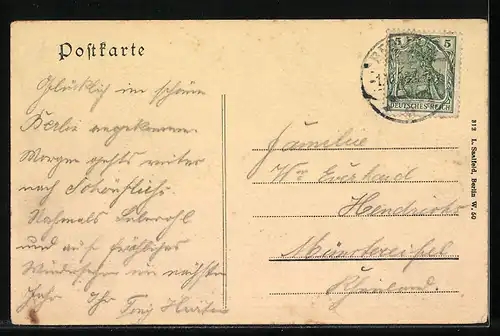 Postkarte
Glücklich im schönen
Berlin angekommen.
Morgen gehts weiter
nach Schönfließ.
Nochmals Lebewohl
und auf fröhliches
Wiedersehen im nächsten
Jahr Ihr Tony
5 5
DEUTSCHES REICH
Familie
Wwe Everhard
Münstereifel
Rheinland.
312 L. Saalfeld, Berlin W. 50